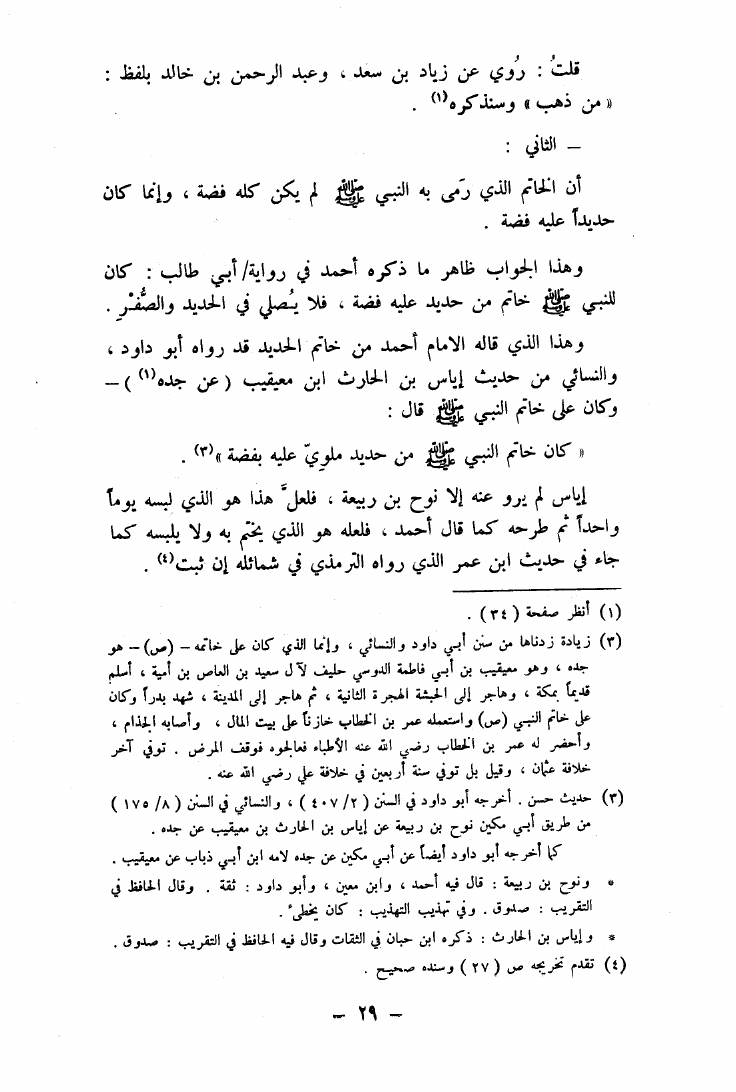 قلتُ : رُوي عن زياد بن سعد ، وعبد الرحمن بن خالد بلفظ :
« من ذهب » وسنذكره(١) .
– الثاني :
أن الخاتم الذي رَمى به النبي ﷺ لم يكن كله فضة ، وإنما كان
حديداً عليه فضة .
وهذا الجواب ظاهر ما ذكره أحمد في رواية/ أبي طالب : كان
للنبي ﷺ خاتم من حديد عليه فضة ، فلا يُصلي في الحديد والصُّفْرِ .
وهذا الذي قاله الامام أحمد من خاتم الحديد قد رواه أبو داود ،
والنسائي من حديث إياس بن الحارث ابن معيقيب ( عن جده(١) ) –
وكان على خاتم النبي ﷺ قال :
« كان خاتم النبي ﷺ من حديد ملويّ عليه بفضة »(٣) .
إياس لم يرو عنه إلا نوح بن ربيعة ، فلعلَّ هذا هو الذي لبسه يوماً
واحداً ثم طرحه كما قال أحمد ، فلعله هو الذي يختم به ولا يلبسه كما
جاء في حديث ابن عمر الذي رواه الترمذي في شمائله إن ثبت(٤) .
(١) أنظر صفحة ( ٣٤ ) .
(٣) زيادة زدناها من سنن أبي داود والنسائي ، وإنما الذي كان على خاتمه – (ص) – هو
جده ، وهو معيقيب بن أبي فاطمة الدوسي حليف لآل سعيد بن العاص بن أمية ، أسلم
قديماً بمكة ، وهاجر إلى الحبشة الهجرة الثانية ، ثم هاجر إلى المدينة ، شهد بدراً وكان
على خاتم النبي (ص) واستعمله عمر بن الخطاب خازناً على بيت المال ، وأصابه الجذام ،
وأحضر له عمر بن الخطاب رضي الله عنه الأطباء فعالجوه فوقف المرض . توفي آخر
خلافة عثمان ، وقيل بل توفي سنة أربعين في خلافة علي رضي الله عنه .
(٣) حديث حسن . أخرجه أبو داود في السنن ( ٢/ ٤٠٧ ) ، والنسائي في السنن ( ٨/ ١٧٥ )
من طريق أبي مكين نوح بن ربيعة عن إياس بن الحارث بن معيقيب عن جده .
كما أخرجه أبو داود أيضاً عن أبي مكين عن جده لامه ابن أبي ذباب عن معيقيب .
* ونوح بن ربيعة : قال فيه أحمد ، وابن معين ، وأبو داود : ثقة . وقال الحافظ في
التقريب : صدوق . وفي تهذيب التهذيب : كان يخطىء .
* وإياس بن الحارث : ذكره ابن حبان في الثقات وقال فيه الحافظ في التقريب : صدوق .
(٤) تقدم تخريجه ص ( ٢٧ ) وسنده صحيح .
– ٢٩ –